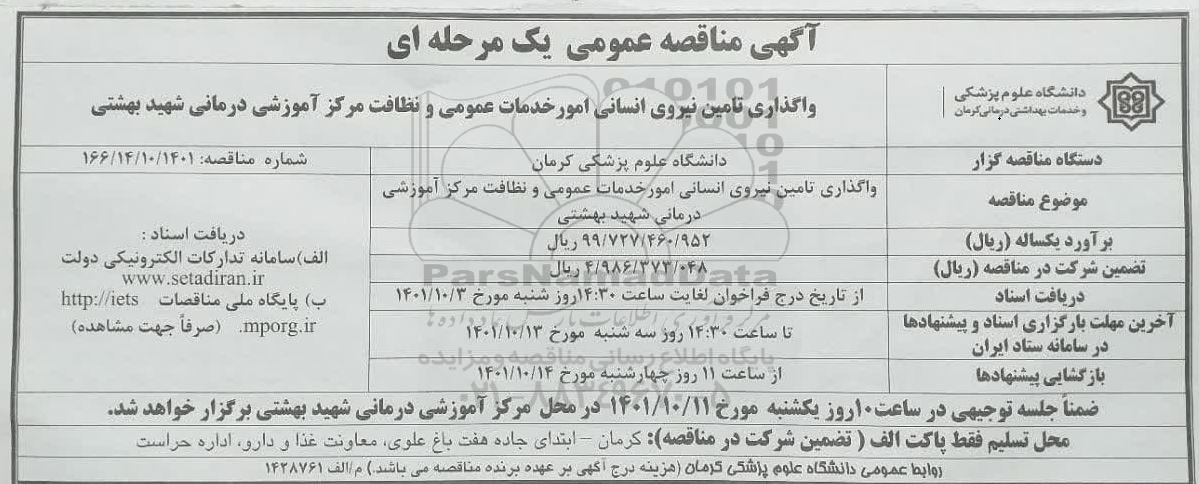 آگهی مناقصه عمومی یک مرحله ای
دانشگاه علوم پزشکی
و خدمات بهداشتی درمانی کرمان
واگذاری تامین نیروی انسانی امور خدمات عمومی و نظافت مرکز آموزشی درمانی شهید بهشتی
دستگاه مناقصه گزار
دانشگاه علوم پزشکی کرمان
شماره مناقصه: ۱۶۶/۱۴/۱۰/۱۴۰۱
موضوع مناقصه
واگذاری تامین نیروی انسانی امورخدمات عمومی و نظافت مرکز آموزشی
درمانی شهید بهشتی
برآورد یکساله (ریال)
۹۹/۷۲۷/۴۶۰/۹۵۲ ریال
تضمین شرکت در مناقصه (ریال)
۴/۹۸۶/۳۷۳/۰۴۸ ریال
دریافت اسناد
از تاریخ درج فراخوان لغایت ساعت ۱۴:۳۰روز شنبه مورخ ۱۴۰۱/۱۰/۳
آخرین مهلت بارگزاری اسناد و پیشنهادها
در سامانه ستاد ایران
تا ساعت ۱۴:۳۰ روز سه شنبه مورخ ۱۴۰۱/۱۰/۱۳
بازگشایی پیشنهادها
از ساعت ۱۱ روز چهارشنبه مورخ ۱۴۰۱/۱۰/۱۴
دریافت اسناد :
الف)سامانه تدارکات الکترونیکی دولت
www.setadiran.ir
ب) پایگاه ملی مناقصات http://iets
.mporg.ir (صرفاً جهت مشاهده)
ضمناً جلسه توجیهی در ساعت۱۰روز یکشنبه مورخ ۱۴۰۱/۱۰/۱۱ در محل مرکز آموزشی درمانی شهید بهشتی برگزار خواهد شد.
محل تسلیم فقط پاکت الف ( تضمین شرکت در مناقصه): کرمان – ابتدای جاده هفت باغ علوی، معاونت غذا و دارو، اداره حراست
روابط عمومی دانشگاه علوم پزشکی کرمان (هزینه درج آگهی بر عهده برنده مناقصه می باشد.) م/الف ۱۴۲۸۷۶۱
ParsNamadData
پایگاه اطلاع رسانی مناقصه و مزایده